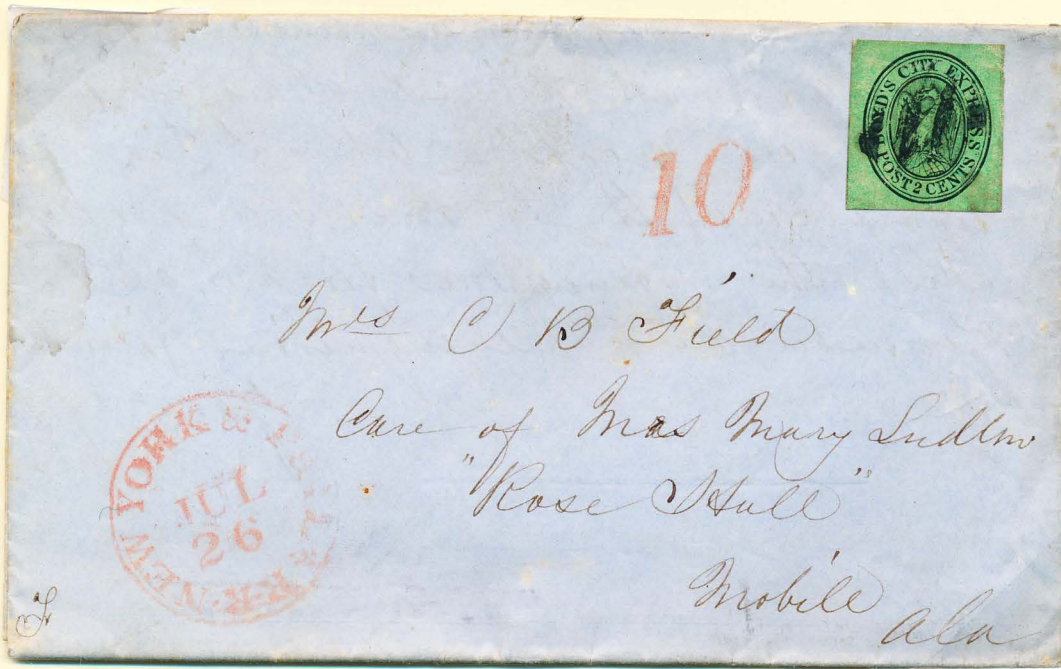 BOYD'S CITY EXPRESS
POST 2 CENTS
10
Mrs C B Field
Care of Mrs Mary Ludlow
"Rose Hull"
Mobile
Ala
NEW YORK &
R.R.
JUL
26